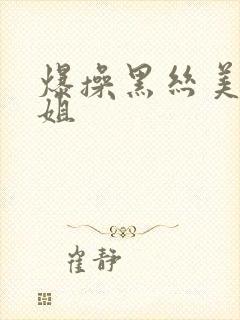 爆操黑丝美
姐
崔静